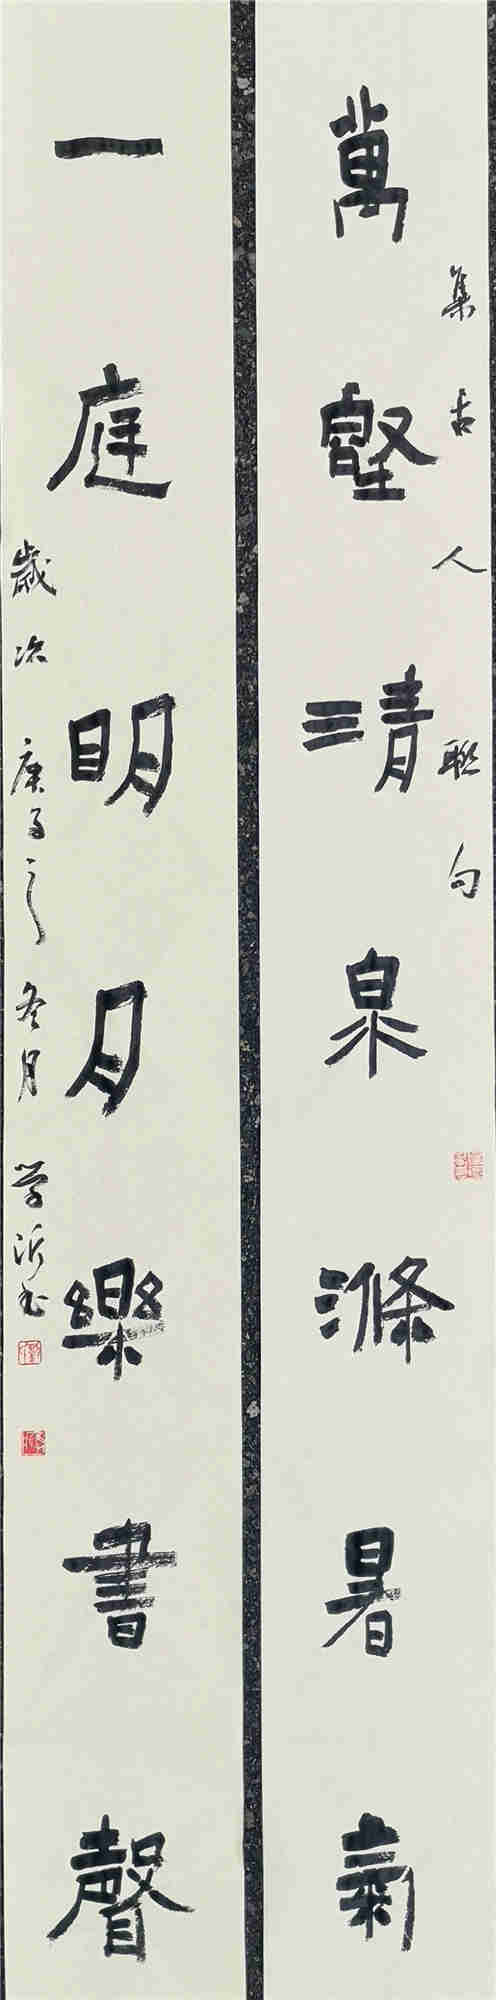 萬壑清泉滌暑氣
集古人聯句
一庭明月樂書聲
歲次庚子之冬月学沂书